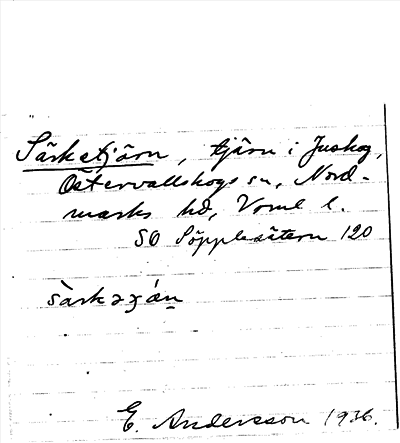 Särketjärn, tjärn i Juskog,
Östervallskogs sn, Nord-
marks hd, Verml l.
SO Söpplesätern 120
sàrkəʒǽn̠
E. Andersson 1936.